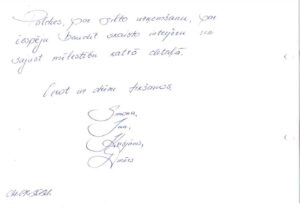 Paldies, par silto uzņemšanu, par
iespēju baudīt skaisto interjeru un
sajust mīlestību katrā detaļā.
Cerot uz drīzu tikšanos
Simona,
Ina,
Kristjāns,